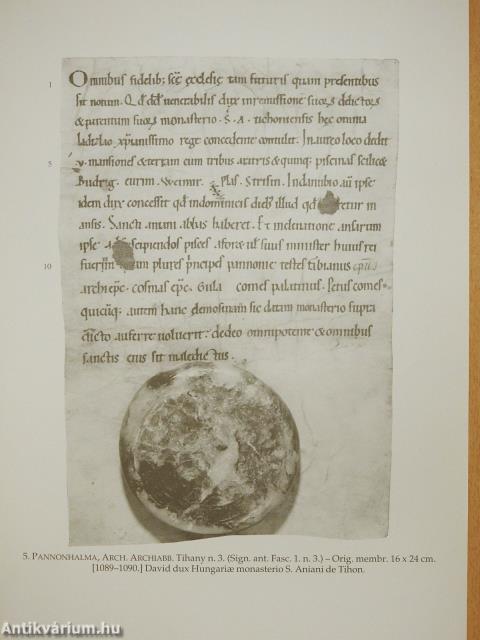 1 Omnibus fidelib; scē ęcclesię tam futuris quam presentibus
sit notum. Qd dd venerabilis dux in remissione suorū delictorū
& parentum suorū monasterio. S. A. tichoniensis hec omnia
ladizlao xpianissimo rege concedente contulit. In aureo loco dedit
5 v. mansiones & terram cum tribus aratris & quinq; piscinas scilic&
Budrig. eurim. Weimir. plas. Strisin. In danubio aū ipse
idem dux concessit qd in dominicis dieb; illud qd etur in
ansis. Sancti aniani abbas haberet. Et in donatione ansarum
ipse scipiendos pisces. a foraę ul suus minister huius rei
10 fuerunt plures principes pannonie testes
archiepc. cosmas epc. Gula comes palatinus. Petus comes.
quicūq; autem hanc demosinam sic datam monasterio supra
dicto auferre voluerit: de deo omnipotente & omnibus
sanctis eius sit maledictus.
5. PANNONHALMA, ARCH. ARCHIABB. Tihany n. 3. (Sign. ant. Fasc. 1. n. 3.) – Orig. membr. 16 x 24 cm.
[1089–1090.] David dux Hungariæ monasterio S. Aniani de Tihon.
Antikvárium.hu